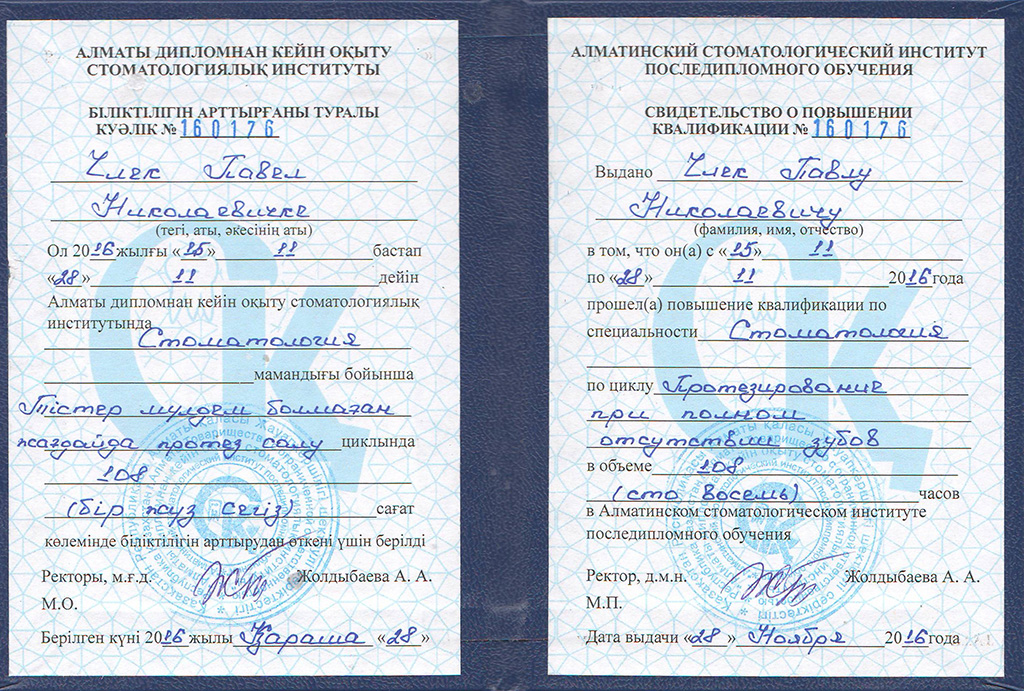 АЛМАТЫ ДИПЛОМНАН КЕЙІН ОҚЫТУ
СТОМАТОЛОГИЯЛЫҚ ИНСТИТУТЫ
БІЛІКТІЛІГІН АРТТЫРҒАНЫ ТУРАЛЫ
КУӘЛІК № 160176
Члек Павел
Николаевичке
(тегі, аты, әкесінің аты)
Ол 2016 жылғы «15» 11 бастап
«28» 11 дейін
Алматы дипломнан кейін оқыту стоматологиялық
институтында
Стоматология
мамандығы бойынша
Тістер мүлдем болмаған
жағдайда протез салу циклында
108
(бір жүз сегіз) сағат
көлемінде біліктілігін арттырудан өткені үшін берілді
Ректоры, м.ғ.д. Жолдыбаева А. А.
М.О.
Берілген күні 2016 жылы Қараша «28»
АЛМАТИНСКИЙ СТОМАТОЛОГИЧЕСКИЙ ИНСТИТУТ
ПОСЛЕДИПЛОМНОГО ОБУЧЕНИЯ
СВИДЕТЕЛЬСТВО О ПОВЫШЕНИИ
КВАЛИФИКАЦИИ № 160176
Выдано Члек Павлу
Николаевичу
(фамилия, имя, отчество)
в том, что он(а) с «15» 11
по «28» 11 2016 года
прошел(а) повышение квалификации по
специальности Стоматология
по циклу Протезирование
при полном
отсутствии зубов
в объеме 108
(сто восемь) часов
в Алматинском стоматологическом институте
последипломного обучения
Ректор, д.м.н. Жолдыбаева А. А.
М.П.
Дата выдачи «28» Ноября 2016 года